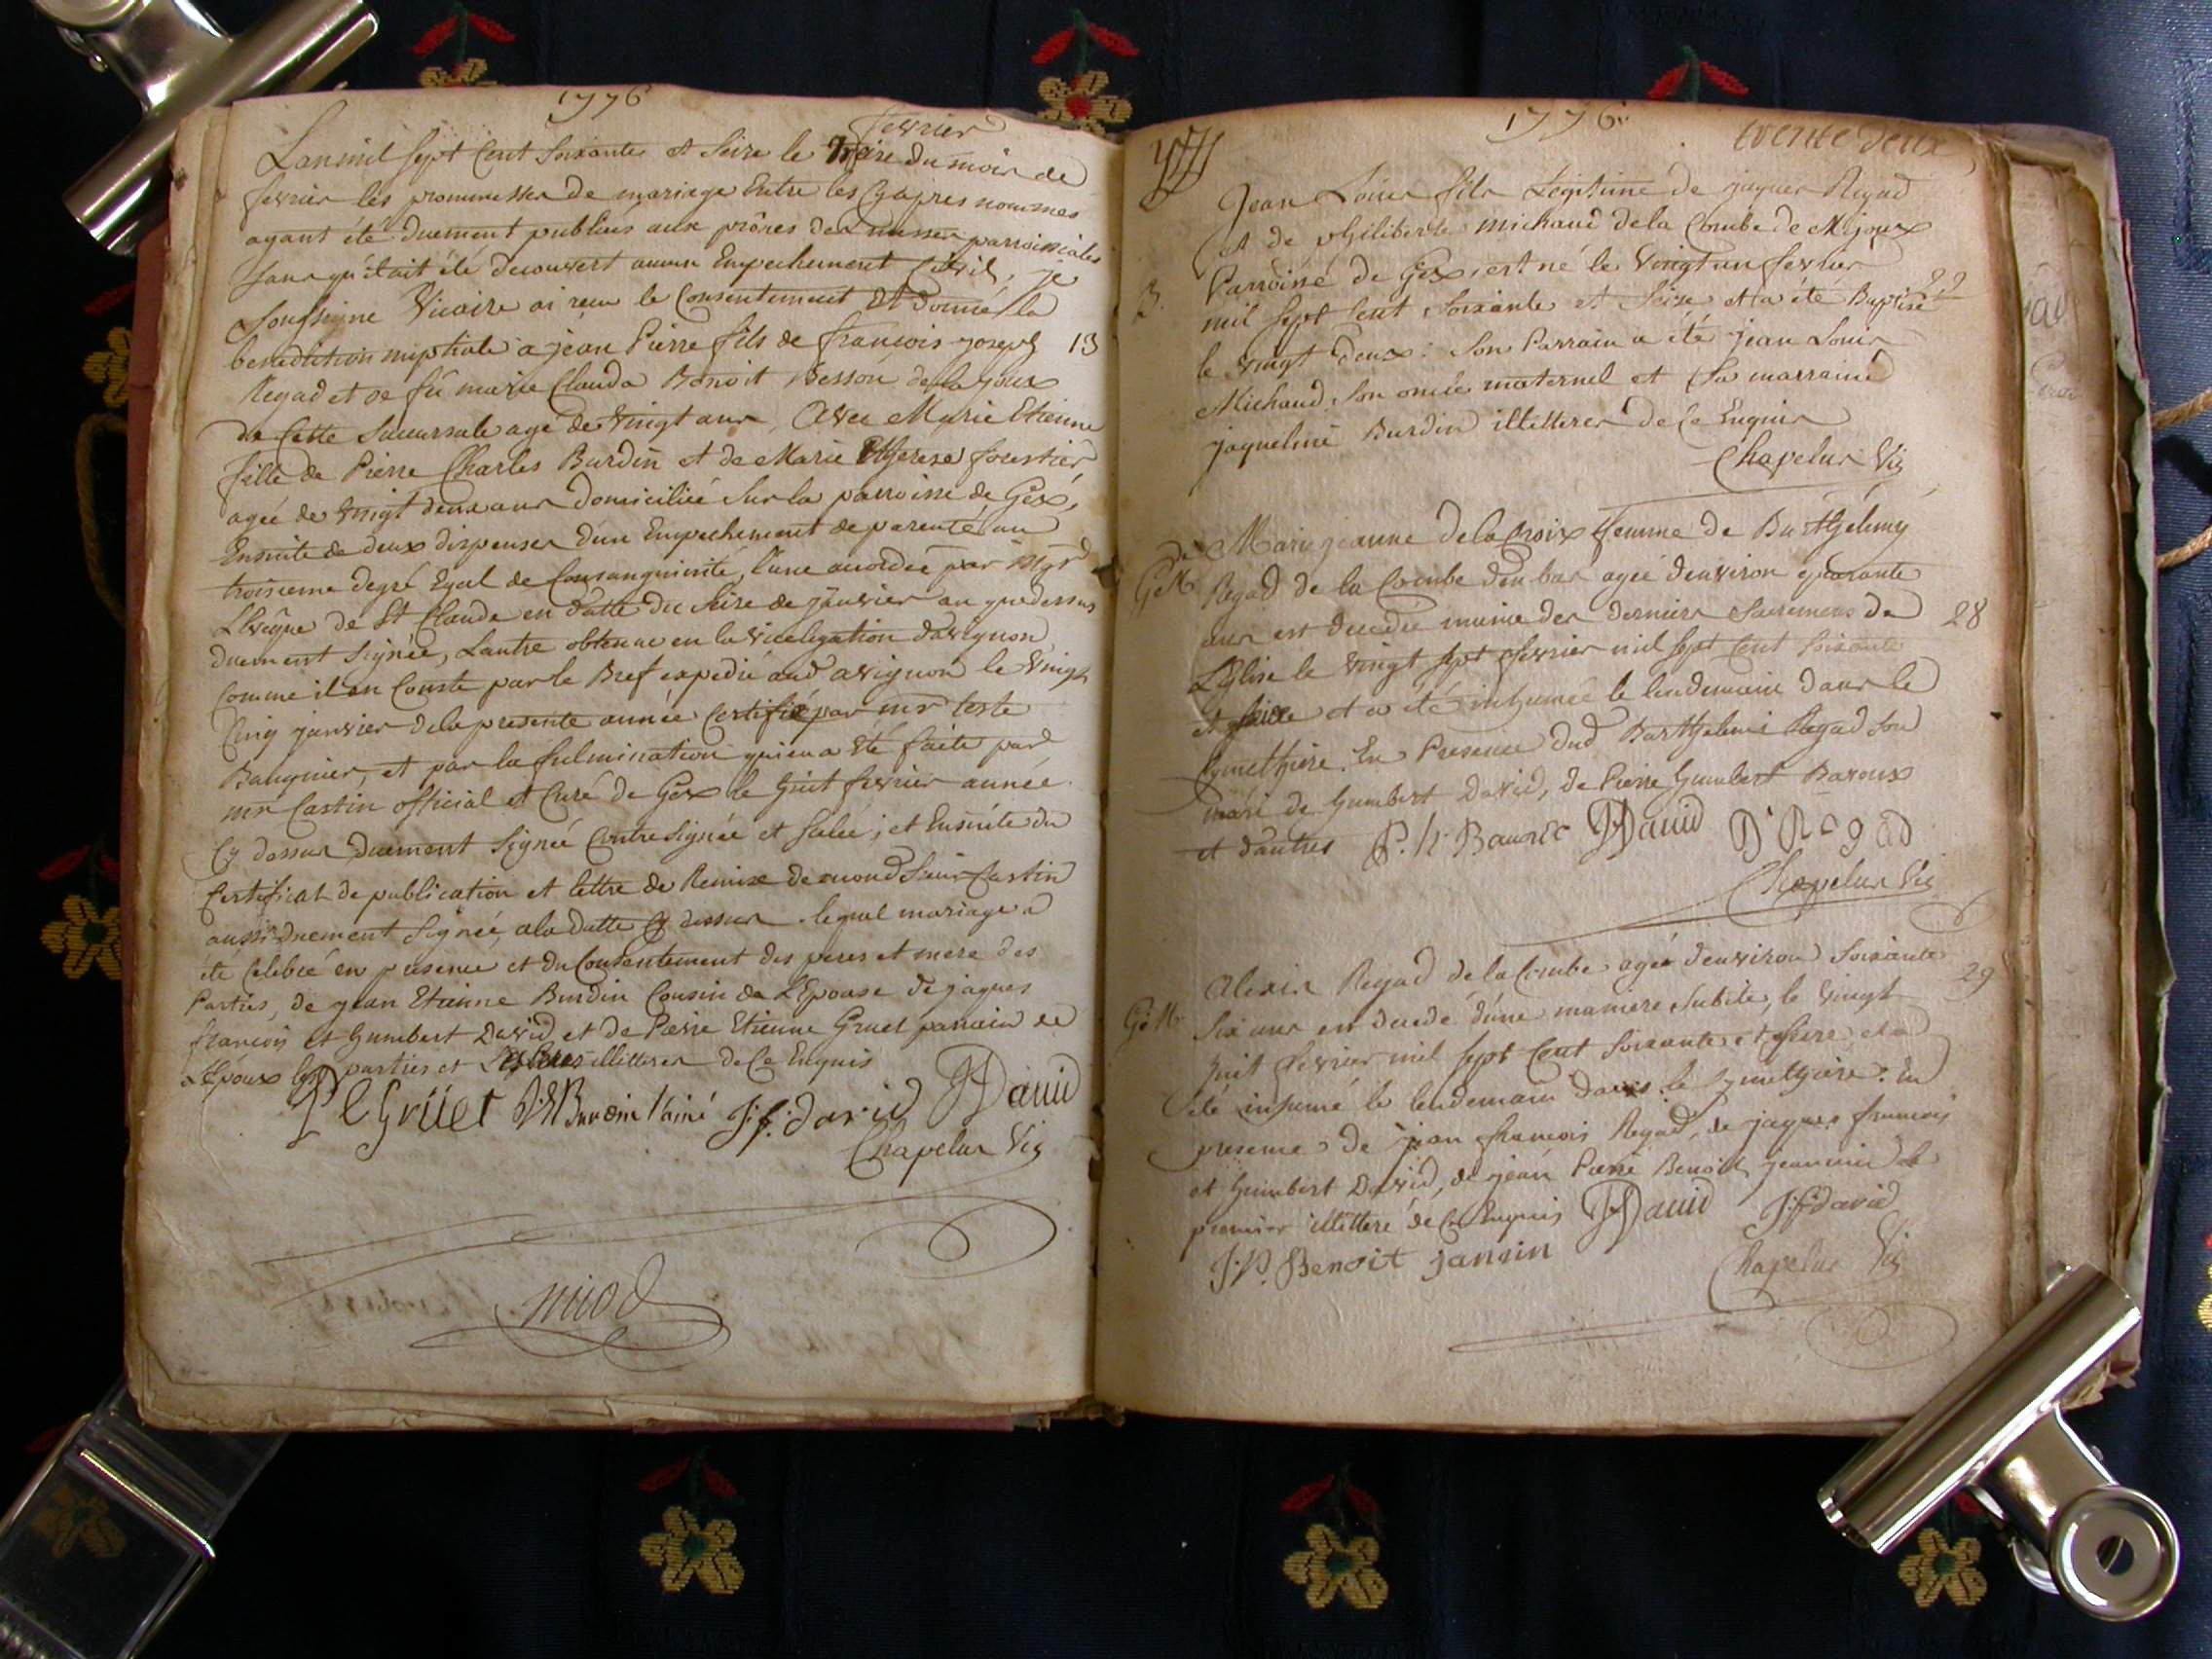 1776
fevrier
Lan mil sept Cent soixante et seize le treize du mois de
fevrier les prommesses de mariage Entre les Cy apres nommes
ayant été duement publiées aux prônes des messes parroissiales
sans qu'il ait été decouvert aucun Empechement Civil, je
soussigné Vicaire ai reçu le Consentement et donné la
benediction nuptiale a jean Pierre fils de françois joseph 13
Regad et de fû marie Clauda Benoit Besson de la joux
de Cette Succursale agé de vingt ans, Avec Marie Etienne
fille de Pierre Charles Burdin et de Marie Therese forestier
agée de vingt deux ans domiciliée sur la parroisse de Gex,
Ensuite de deux dispenses d'un Empechement de parenté au
troisieme degré Egal de Consanguinité, l'une accordée par Mgr
L'Evêque de St Claude en datte du seize de janvier an que dessus
duement signée, Lautre obtenue en la vicelegation davignon
Comme il en Conste par le Bref expedié aud avignon le vingt
Cinq janvier de la presente année Certifié par mr teste
Banquier, et par la fulmination qui en a été faite par
mr Castin official et Curé de Gex le huit fevrier année
Cy dessus duement signée Contresignée et scelée ; et Ensuite du
Certificat de publication et lettre de Remise de mond Sieur Castin
aussi duement signée, a la datte Cy dessus . lequel mariage a
été Celebré en presence et du Consentement des peres et mere des
Parties, de jean Etienne Burdin Cousin de L'Epouse de jaques
françois et humbert David et de Pierre Etienne Gruet parrain de
L'Epoux les parties et illitteres de Ce Enquis
P E Grüet J E Burdin l'ainé J. f. david H David
Chapelus Vic
nicod
1776
trente deux
Jean Louis fils Légitime de jaques Regad
et de philiberte michaud de la Combe de Mijoux
Parroisse de Gex est né le vingt un fevrier 22
B. mil sept Cent soixante et seize et a été Baptisé
le vingt deux : son Parrain a été jean Louis
Michaud son oncle maternel et sa marraine
jaqueline Burdin illitteres de Ce Enquis
Chapelus Vic
Marie jeanne de la Croix femme de Barthelemy
Regad de la Combe d'en bas agée d'environ quarante
ans est decedée munie des derniers sacremens de 28
L'Eglise le vingt sept fevrier mil sept Cent soixante
et seize et a été inhumée le lendemain dans le
Cymethiere. En Presence dud Barthelemi Regad son
mari de humbert David, de Pierre humbert Baroux
et d'autres P. h. Bauroz H David B Regad
Chapelus Vic
Alexis Regad de la Combe agé d'environ soixante 29
six ans est decedé d'une maniere subite, le vingt
huit fevrier mil sept Cent soixante et seize, et a
été inhumé le lendemain dans le Cymethiere. En
presence de jean françois Regad, de jaques françois
et humbert David, de jean Pierre Benoit jeannin le
premier illitteré de Ce Enquis H David J. f. david
J. P. Benoit janin
Chapelus Vic